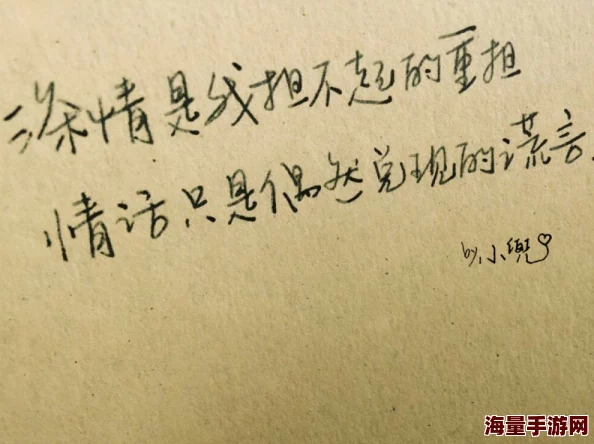 深情是我担不起的重担
情话只是偶然兑现的谎言.
by.小兜
海量手游网